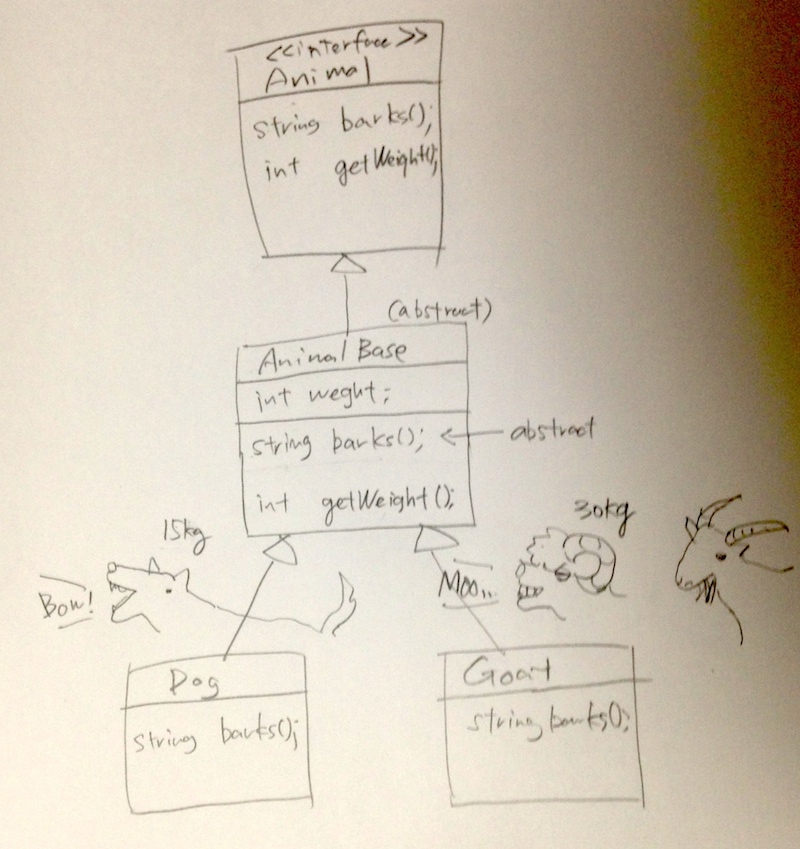 <<interface>>
Animal
string barks();
int getWeight();
(abstract)
Animal Base
int weght;
string barks();
abstract
int getWeight();
15kg
30kg
Bow!
Moo...
Dog
string barks();
Goat
string barks();